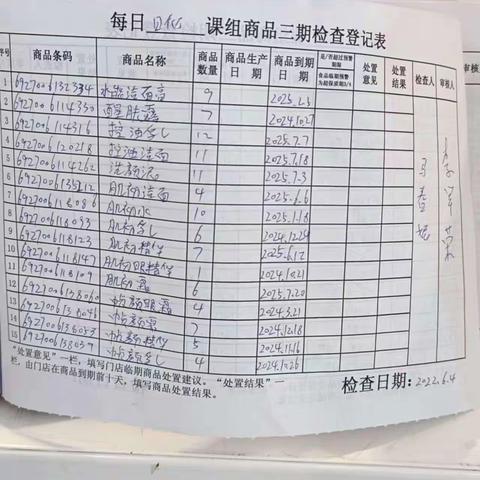 每日 日化 课组商品三期检查登记表
序号 商品条码 商品名称 商品数量 商品生产日期 商品到期日期 是/否超过预警期限 食品临期预警为超保质期3/4 处置意见 处置结果 检查人 审核人
1 6927006132334 水盈洁面膏 9 2025.2.3
2 6927006114330 醒肤露 7 2024.10.27
3 6927006114316 控油乳 12 2025.7.7
4 6927006120218 控油洁面 11 2025.7.18
5 6927006114262 洗颜泥 11 2025.7.3
6 6927006135212 肌初洁面 4 2025.6.6
7 6927006118086 肌初水 10 2025.1.18
8 6927006118093 肌初乳 6 2024.12.24
9 6927006118123 肌初精华 7 2025.6.12
10 6927006118147 肌初眼精华 1 2024.10.21
11 6927006118109 肌初霜 6 2025.7.20
12 6927006138060 颜眼霜 4 2024.3.21
13 6927006138046 颜霜 7 2024.12.18
14 6927006138053 颜精华 5 2024.11.16
15 6927006138039 颜乳 4 2024.10.26
马春妮
"处置意见"一栏，填写门店临期商品处置建议。"处置结果"一
栏，由门店在商品到期前十天，填写商品处置结果。
检查日期：2022.6.4